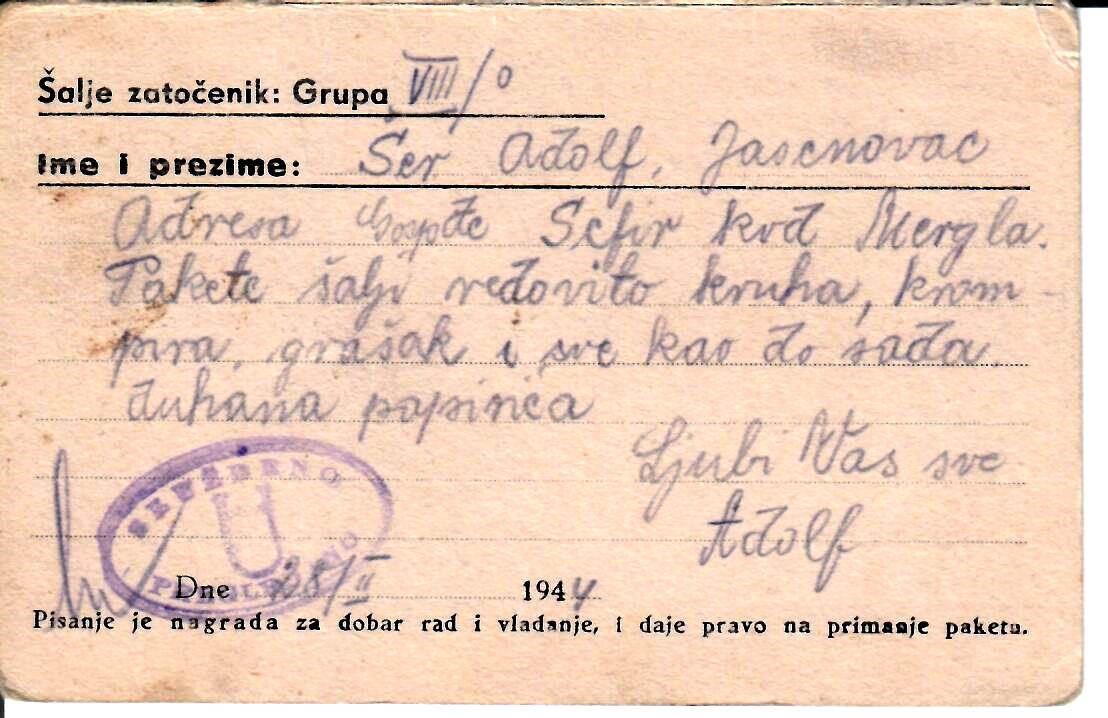 Šalje zatočenik: Grupa VIII/0
Ime i prezime: Šer Adolf, Jasenovac
Adresa Gospđe Sefir kod Mergla.
Pakete šalji redovito kruha, krom-
pira, grašak i sve kao do sada,
duhana papirića
Ljubi Vas sve
Adolf
Dne 28/II 1944
Pisanje je nagrada za dobar rad i vladanje, i daje pravo na primanje paketa.